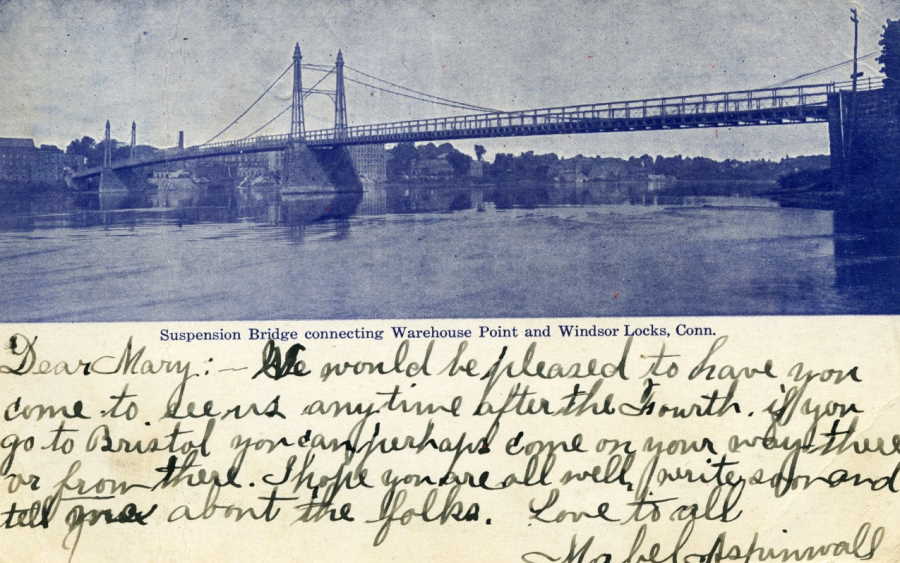 Suspension Bridge connecting Warehouse Point and Windsor Locks, Conn.
Dear Mary: — We would be pleased to have you
come to see us anytime after the Fourth. if you
go to Bristol you can perhaps come on your way there
or from there. I hope you are all well, write soon and
tell me about the folks. Love to all
Mabel Aspinwall